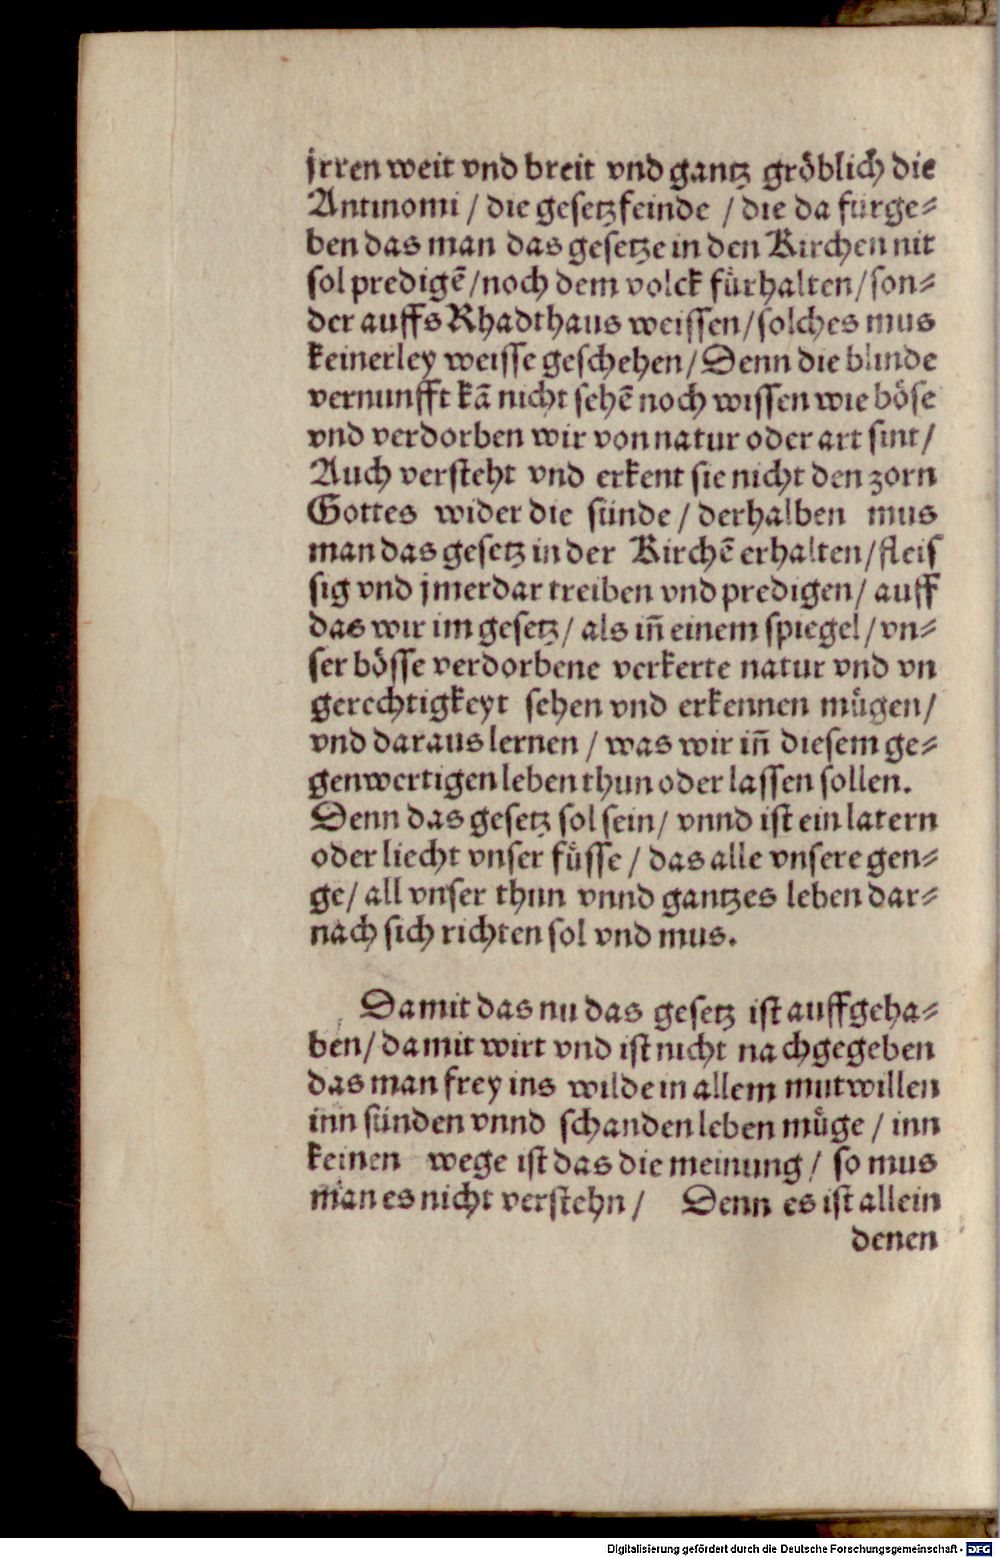 jrren weit vnd breit vnd gantz gröblich die
Antinomi / die gesetzfeinde / die da fürge⸗
ben das man das gesetze in den Kirchen nit
sol predigẽ / noch dem volck fürhalten / son⸗
der auffs Rhadthaus weissen / solches mus
keinerley weisse geschehen / Denn die blinde
vernunfft kã nicht sehẽ noch wissen wie böse
vnd verdorben wir von natur oder art sint /
Auch versteht vnd erkent sie nicht den zorn
Gottes wider die sünde / derhalben mus
man das gesetz in der Kirchẽ erhalten / fleis
sig vnd jmerdar treiben vnd predigen / auff
das wir im gesetz / als in̄ einem spiegel / vn⸗
ser bösse verdorbene verkerte natur vnd vn
gerechtigkeyt sehen vnd erkennen mügen /
vnd daraus lernen / was wir in̄ diesem ge⸗
genwertigen leben thun oder lassen sollen.
Denn das gesetz sol sein / vnnd ist ein latern
oder liecht vnser füsse / das alle vnsere gen⸗
ge / all vnser thun vnnd gantzes leben dar⸗
nach sich richten sol vnd mus.
Damit das nu das gesetz ist auffgeha⸗
ben / damit wirt vnd ist nicht nachgegeben
das man frey ins wilde in allem mutwillen
inn sünden vnnd schanden leben müge / inn
keinen wege ist das die meinung / so mus
man es nicht verstehn / Denn es ist allein
denen
Digitalisierung gefördert durch die Deutsche Forschungsgemeinschaft - DFG